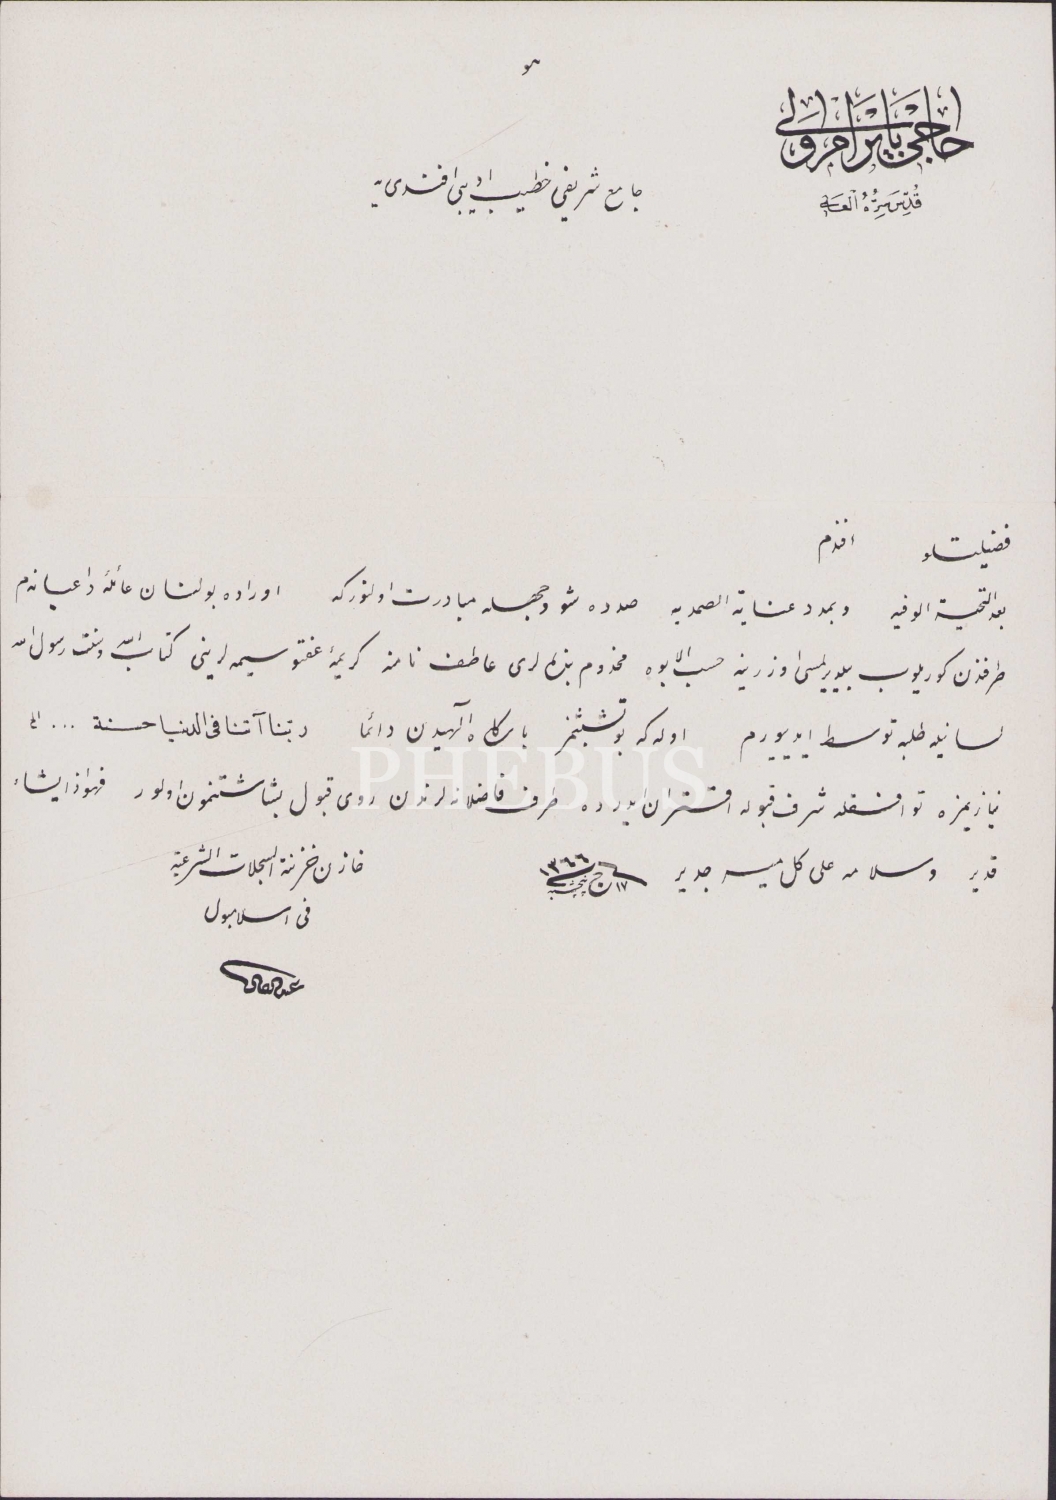 هو
حاجى بايرام ولى
قدس سره العالى
جامع شريفى خطيب اديبى افندى يه
فضيلتلو افندم
بعد التحية الوفيه وبمدد عناية الصمديه صدده شو وجهله مبادرت اولنوركه اوراده بولنان عائلهٔ داعيانه م
طرفندن كوريلوب بيلديرلمسى اوزرينه حسب الابوه مخدوم بنده لرى عاطف نامنه كريمهٔ عفتوسيمه لرينى كتاب الله وسنت رسول الله
لسانيله طلبه توسط ايدييورم اوله كه بو تشبثمز باركاه آلهيدن دائما ربنا آتنا فى الدنيا حسنة ... الخ
نيازيمزه توافقله شرف قبوله اقتران ايدرده طرف فاضلانه لرندن روى قبول بشاشتنمون اولور فهو اذا يشاء
قدير وسلامه على كل ميسر جدير ١٧ ج ١٣٦٦
خازن خزينة السجلات الشرعية
فى اسلامبول
PHEBUS